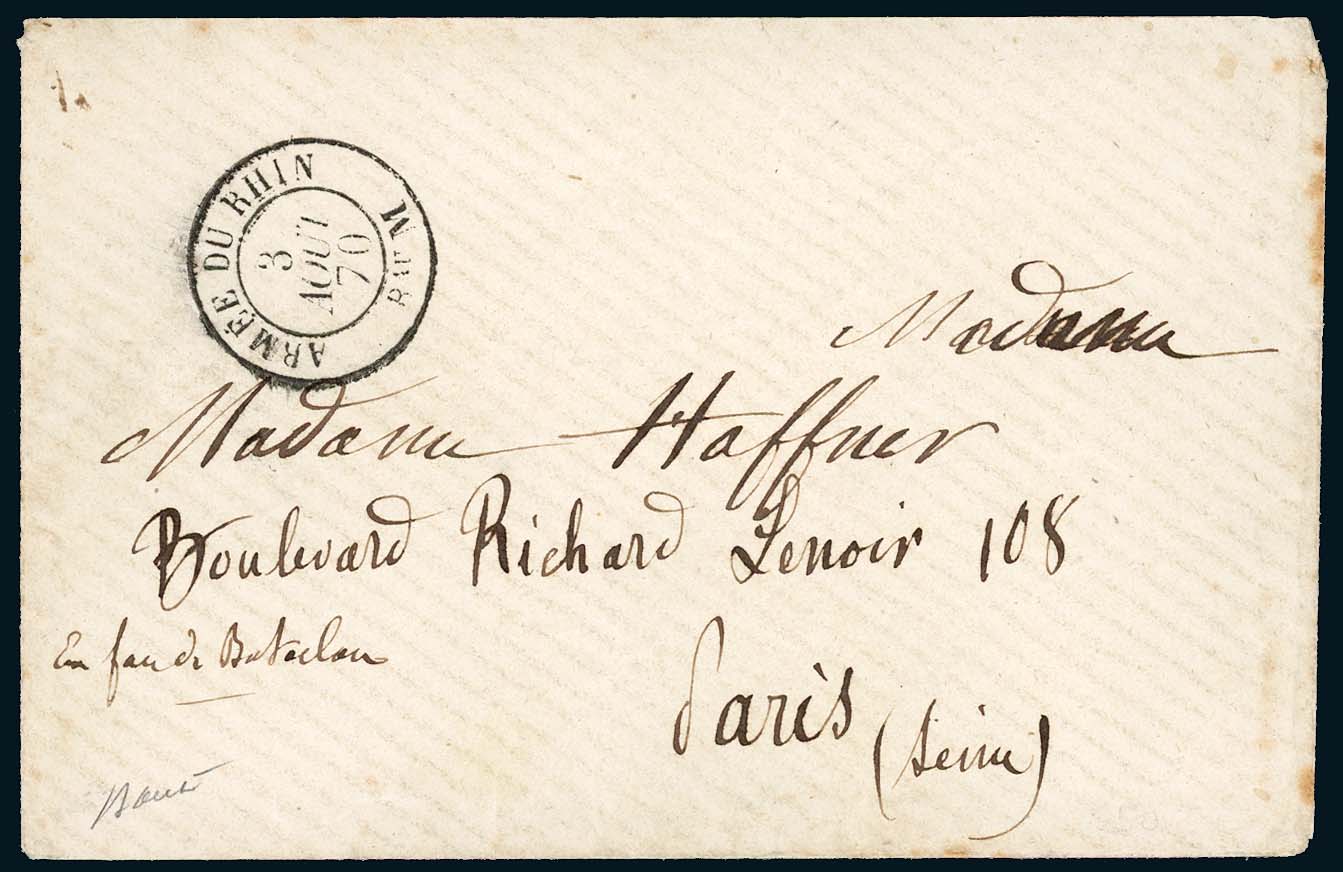 ARMÉE DU RHIN
3
AOUT
70
Madame
Madame Haffner
Boulevard Richard Lenoir 108
En face de Bataclan
Paris
(Seine)